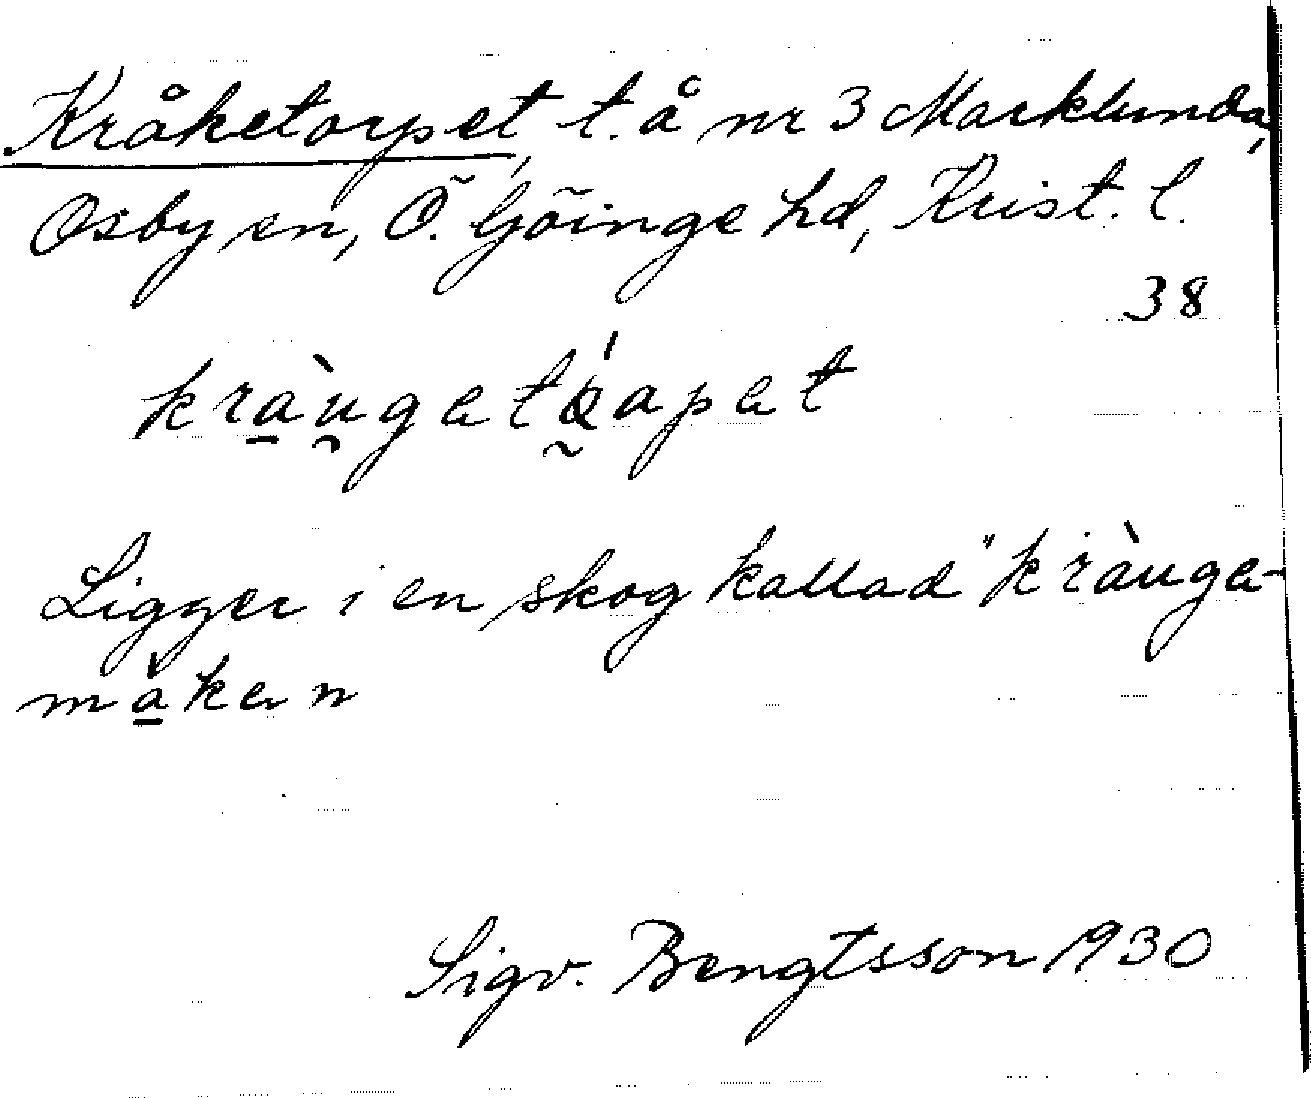 Kråketorpet, t. å nr 3 Marklunda,
Osby sn, Ö. Göinge hd, Krist. l.
38
Ligger i en skog kallad "kràu̯ge-
màken
Sigv. Bengtsson 1930